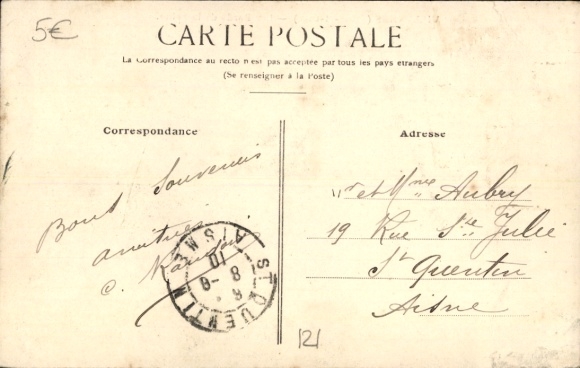 5€
CARTE POSTALE
La Correspondance au recto n'est pas acceptée par tous les pays étrangers
(Se renseigner à la Poste)
Correspondance
Adresse
Bons Souvenirs
amitiés
C.
et Mme Aubry
19 Rue Ste Julie
St Quentin
Aisne
ST QUENTIN AISNE
10
8 - 8
121